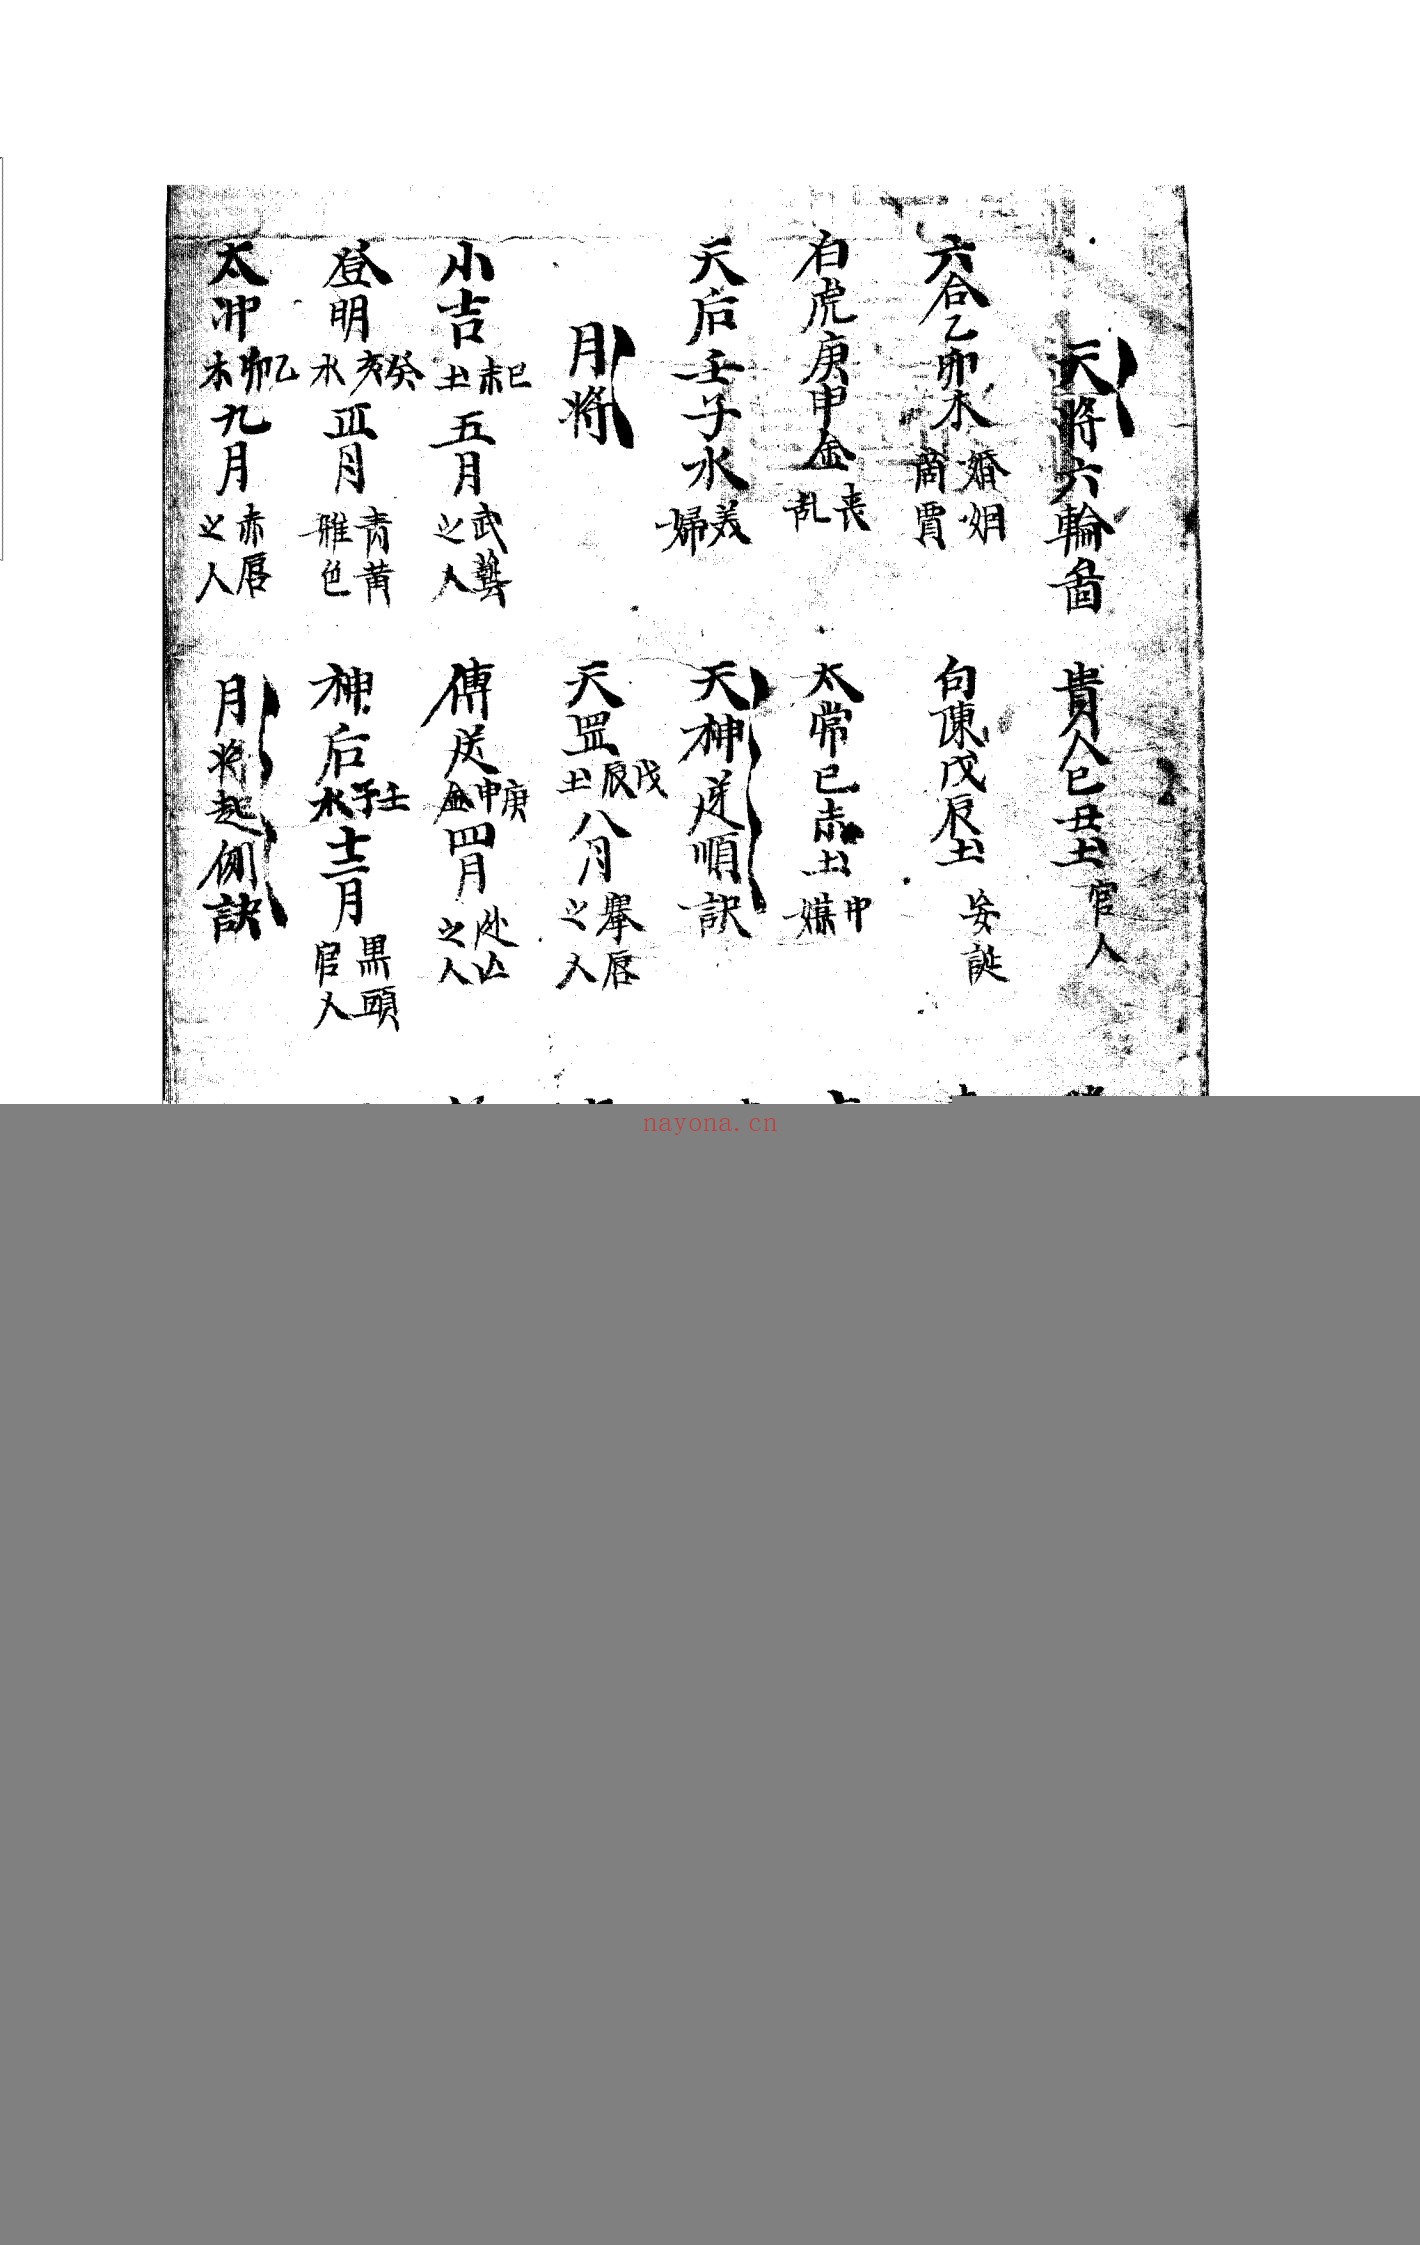 天將六輪啚 貴人巳丑土 官人
六合乙卯木 婚姻 商賈 句陳戊辰土 妄誕
白虎庚申金 喪乱 太常已未土 中媒
天后壬子水 美婦 天神逆順訣
月將 天罡 戊辰土 八月 舉唇之人
小吉 巳未土 五月 武藝之人 傳送 庚申金 四月
登明 癸亥水 正月 青黃雅色 神后 壬子水 十二月 黑頭官人
太冲 乙卯木 九月 赤唇之人 月將起例訣
nayona.cn